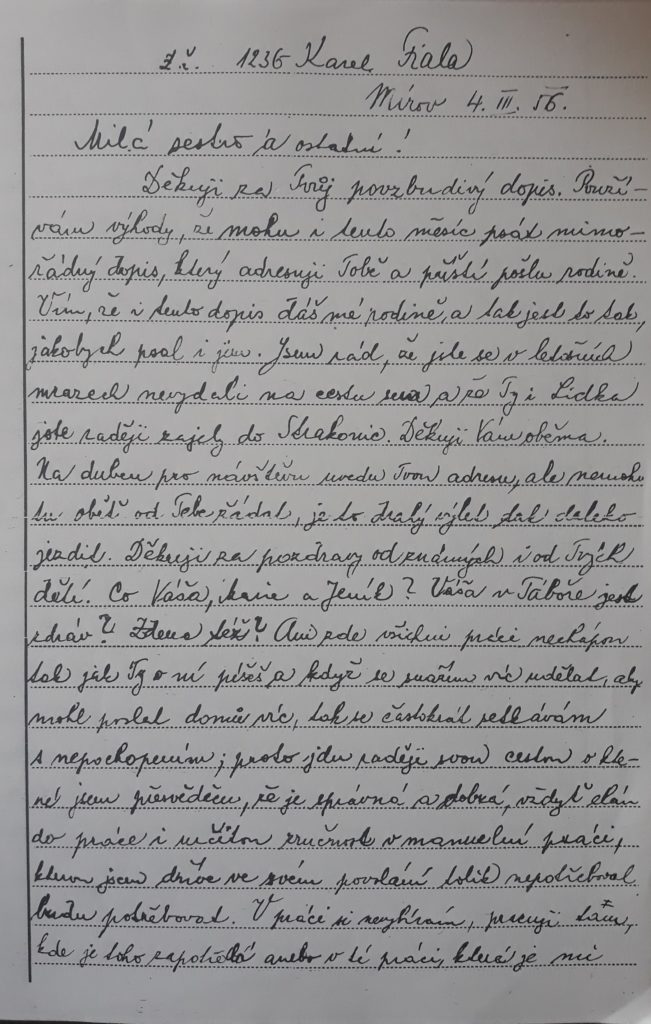 z.č. 1236 Karel Fiala
Mírov 4. III. 56.
Milá sestro a ostatní!
Děkuji za Tvůj povzbudivý dopis. Použí-
vám výhody, že mohu i tento měsíc psát mimo-
řádný dopis, který adresuji Tobě a příští pošlu rodině.
Vím, že i tento dopis dáš mé rodině, a tak jest to tak,
jakobych psal i jim. Jsem rád, že jste se v letošních
mrazech nevydali na cestu sem a že Ty i Lidka
jste raději zajely do Strakonic. Děkuji Vám oběma.
Na duben pro návštěvu uvedu Tvou adresu, ale nemohu
tu oběť od Tebe žádat, je to drahý výlet tak daleko
jezdit. Děkuji za pozdravy od známých i od Tvých
dětí. Co Váša, a Jeník? Váša v Táboře jest
zdráv? Zdena též? Ani zde všichni práci nechápou
tak jak Ty o ní píšeš a když se snažím víc udělat, aby
mohl poslat domů víc, tak se častokrát setkávám
s nepochopením; proto jdu raději svou cestou o kte-
ré jsem přesvědčen, že je správná a dobrá, vždyť elán
do práce i určitou zručnost v manuelní práci,
kterou jsem dříve ve svém povolání tolik nepotřeboval
budu potřebovat. V práci si nevybírám, pracuji tam,
kde je toho zapotřebí anebo v té práci, která je mi